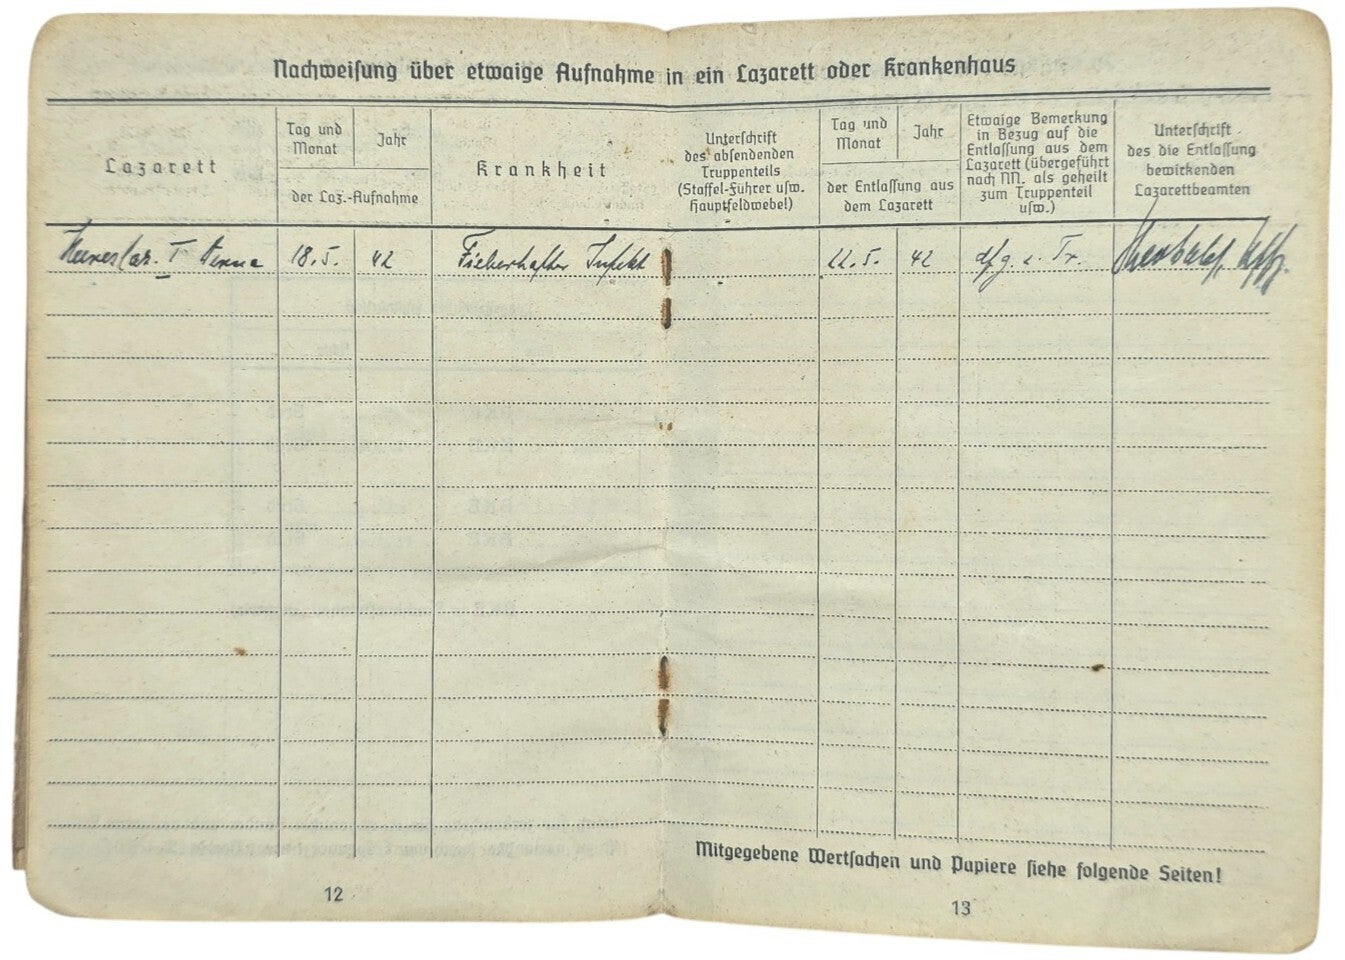 Nachweisung über etwaige Aufnahme in ein Lazarett oder Krankenhaus
Lazarett
Tag und
Monat
Jahr
der Laz.-Aufnahme
Krankheit
Unterschrift
des absendenden
Truppenteils
(Staffel-Führer usw.
Hauptfeldwebel)
Tag und
Monat
Jahr
der Entlassung aus
dem Lazarett
Etwaige Bemerkung
in Bezug auf die
Entlassung aus dem
Lazarett (übergeführt
nach NN. als geheilt
zum Truppenteil
usw.)
Unterschrift
des die Entlassung
bewirkenden
Lazarettbeamten
I 18.5. 42 Fieberhafter Infekt 22.5. 42
Mitgegebene Wertsachen und Papiere siehe folgende Seiten!
12
13